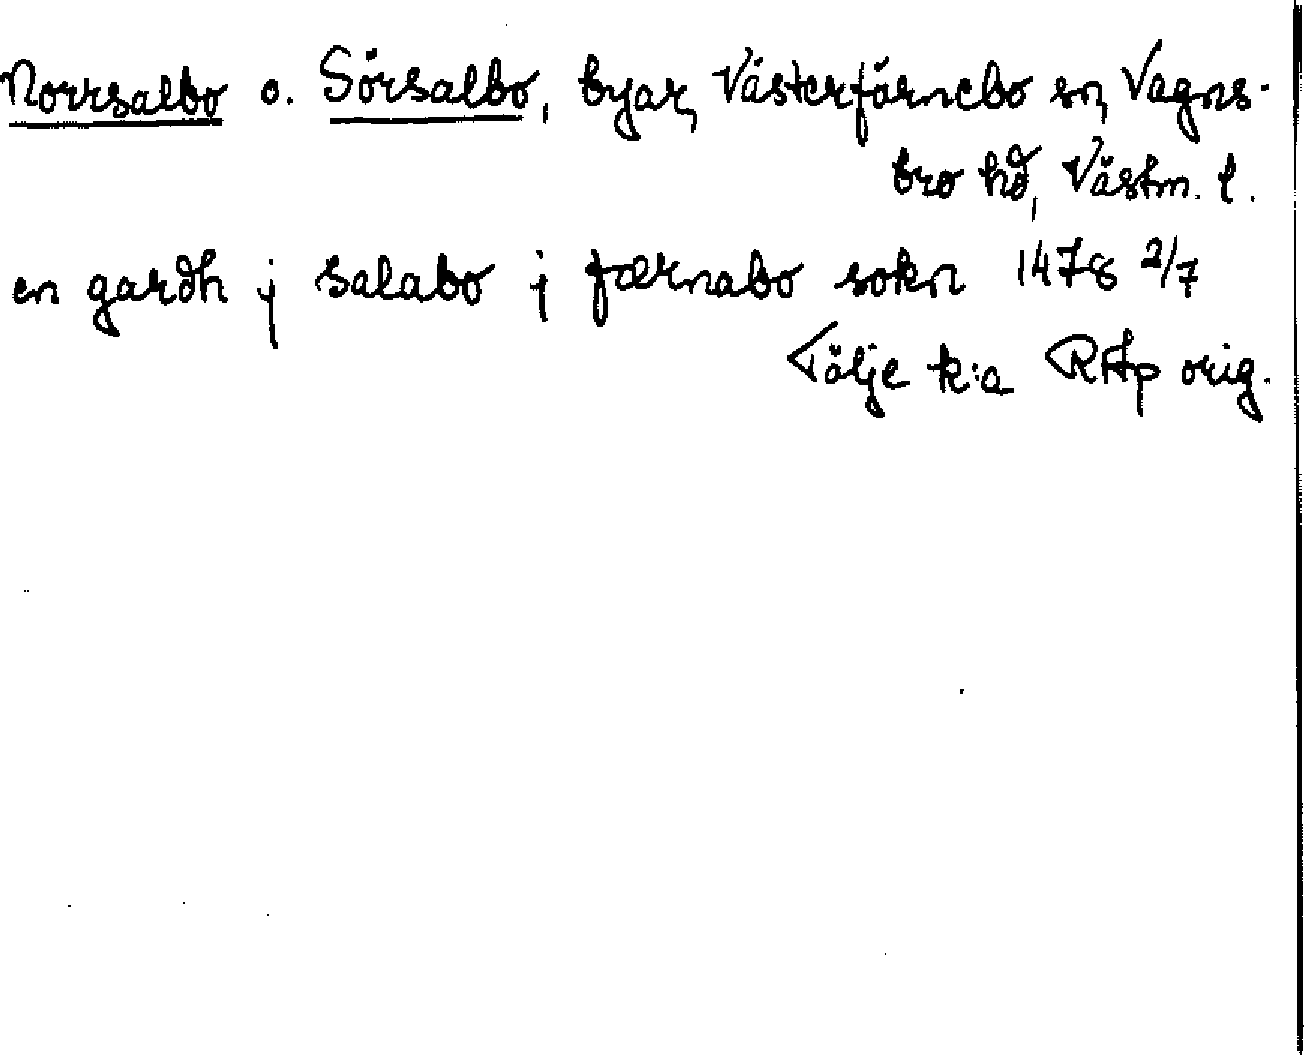 Norrsalbo o. Sörsalbo, byar, Västerfärnebo sn, Vagns-
bro hd, Västm. l.
en gardh j salabo j færnabo sokn 1478 2/7
Tälje k:a RAp orig.